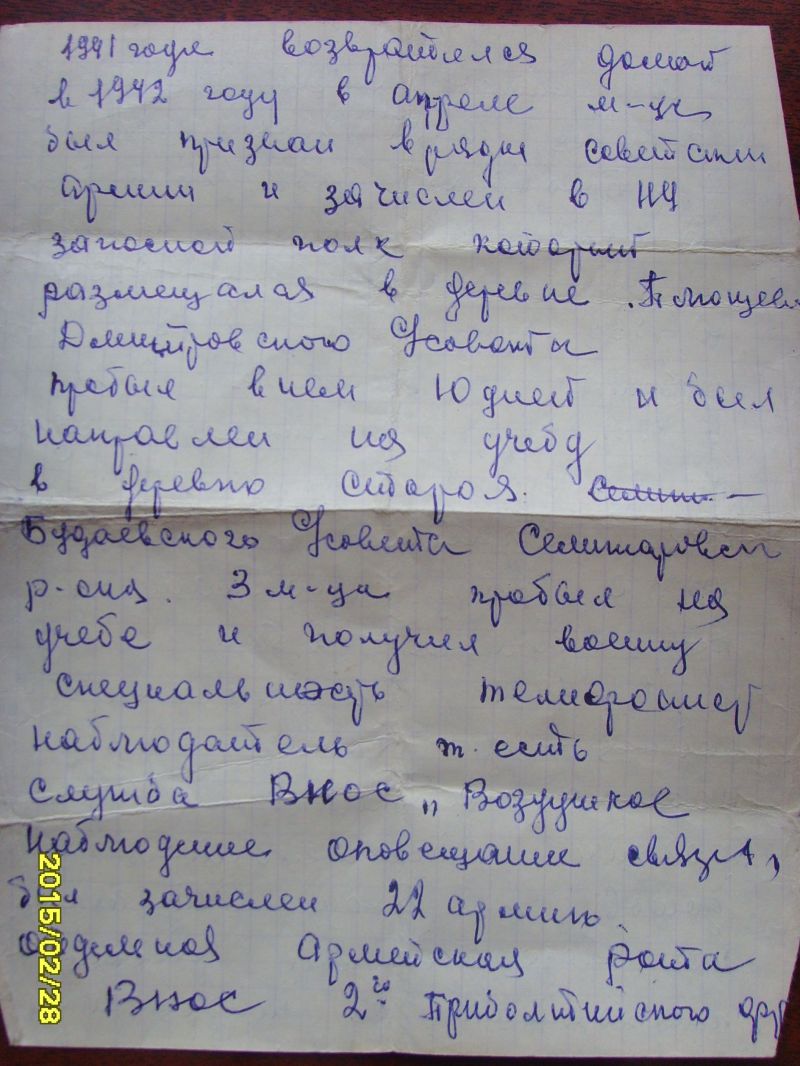 1941 года возвратился домой
в 1942 году в апреле м-це
был призван в ряды советскии
армии и зачислен в
запосной полк который
размещался в деревне
Дмитровского Усовета
пробыл в нем 10 дней и был
направлен на учебу
в деревню Старая
Будаевского Усовета Семилировски
р-она. 3 м-ца пробыл на
учебе и получил воену
специальность телефонист
наблюдатель т. есить
служба ВНОС „ Воздушное
наблюдение оповещание связи,
был зачислен 22 армию
отделеная Армейская Рота
ВНОС 2го Прибалтийского фр
2015/02/28